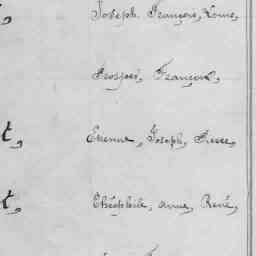 Joseph François, Louis,
Prosper, François,
t, Etienne, Joseph, Pierre,
t, Théophile, Anne, René,